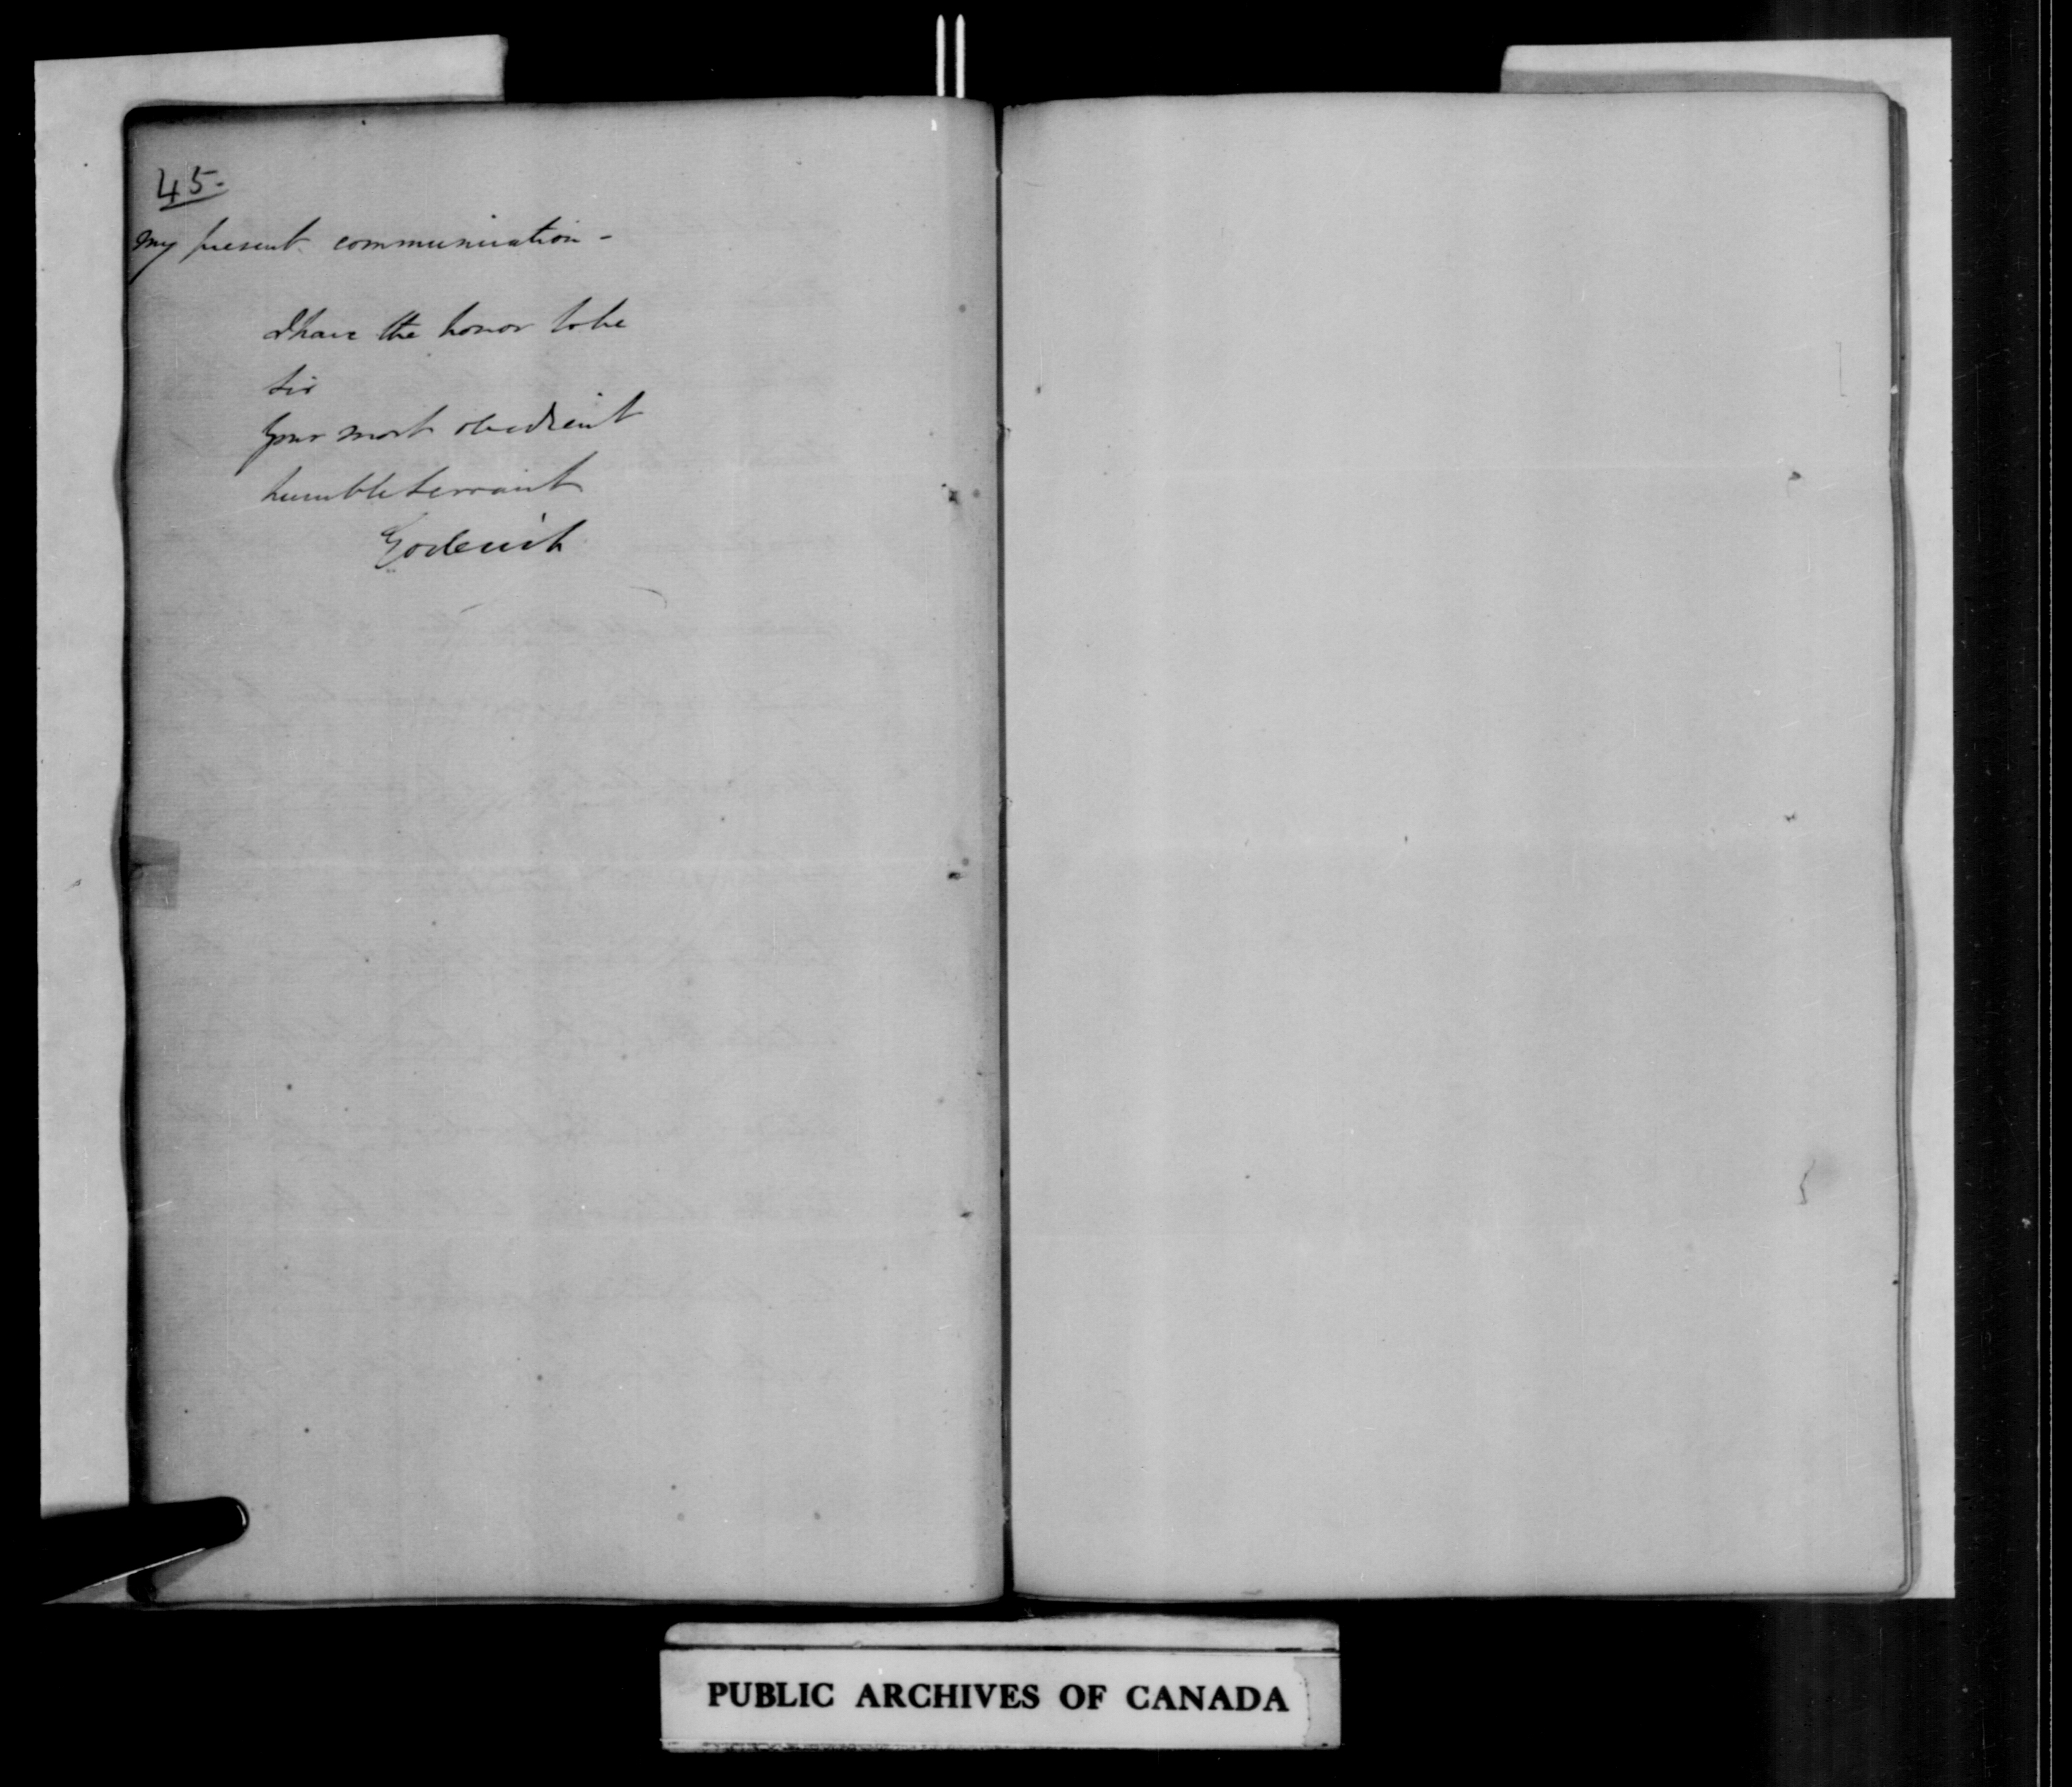 45-
my present communication -
I have the honor to be
Sir
Your most obedient
humble servant
Goderich
PUBLIC ARCHIVES OF CANADA